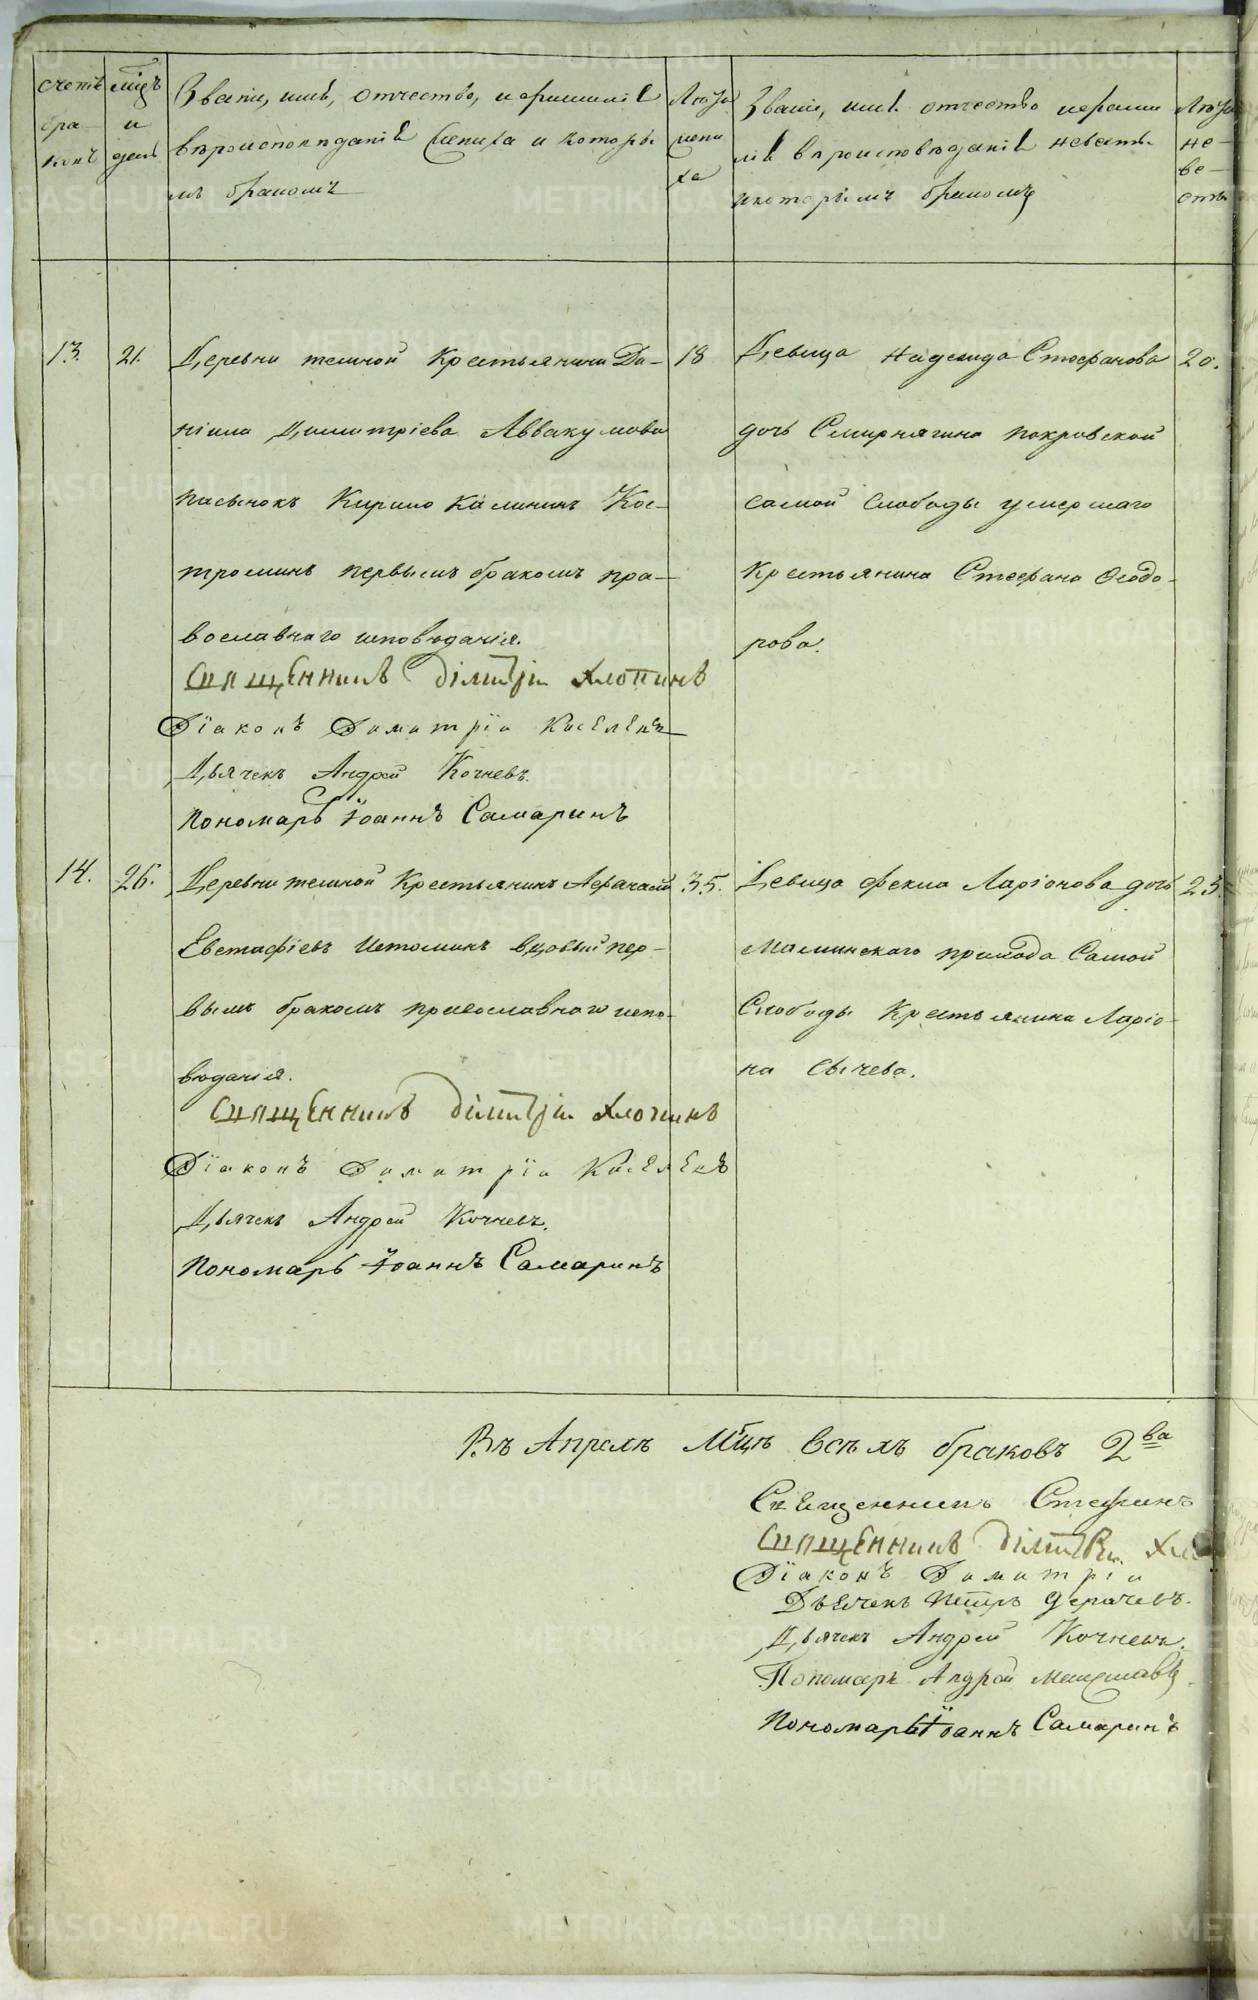 счетъ бра-ковъ
мцъ и день
Званіе, имя, отчество, и фамилія
вѣроисповѣданіе жениха и которы
мъ бракомъ
Лѣта жени ха
Званіе, имя отчество и фами
лія вѣроисповѣданіе невѣсты
и которымъ бракомъ
Лѣта не-вѣ-сты
13. 21. Деревни темной Крестьянина Да- 18
ніила Димитріева Аввакумова
пасынокъ Кирило Калининъ Кос-
троминъ первымъ бракомъ пра-
вославнаго исповѣданія.
Священникъ Дімитрій Хлопинъ
Діаконъ Димитрій Киселевъ
Дьячекъ Андрей Кочневъ.
Пономарь Іоаннъ Самаринъ
Девица Надежда Стефанова 20.
дочь Смирнягина покровской
самой слободы умершаго
Крестьянина Стефана Феодо-
рова.
14. 26. Деревни темной Крестьянинъ Афанасій 35.
Евстафіевъ Истоминъ вдовый пер-
вымъ бракомъ православнаго испо-
вѣданія.
Священникъ Дімитрій Хлопинъ
Діаконъ Димитрій Киселевъ
Дьячекъ Андрей Кочневъ.
Пономарь Іоаннъ Самаринъ
Девица Фекла Ларіонова дочь 23.
Маминскаго прихода Самой
Слободы Крестьянина Ларіо-
на Сычева.
Въ Апрелѣ Мцѣ всѣхъ браковъ 2ва
Священникъ Стефанъ
Священникъ Дімитрій
Діаконъ Димитрій
Дьячекъ Петръ Дерачевъ.
Дьячекъ Андрей Кочневъ.
Пономарь Андрей
Пономарь Іоаннъ Самаринъ
METRIKI.GASO-URAL.RU